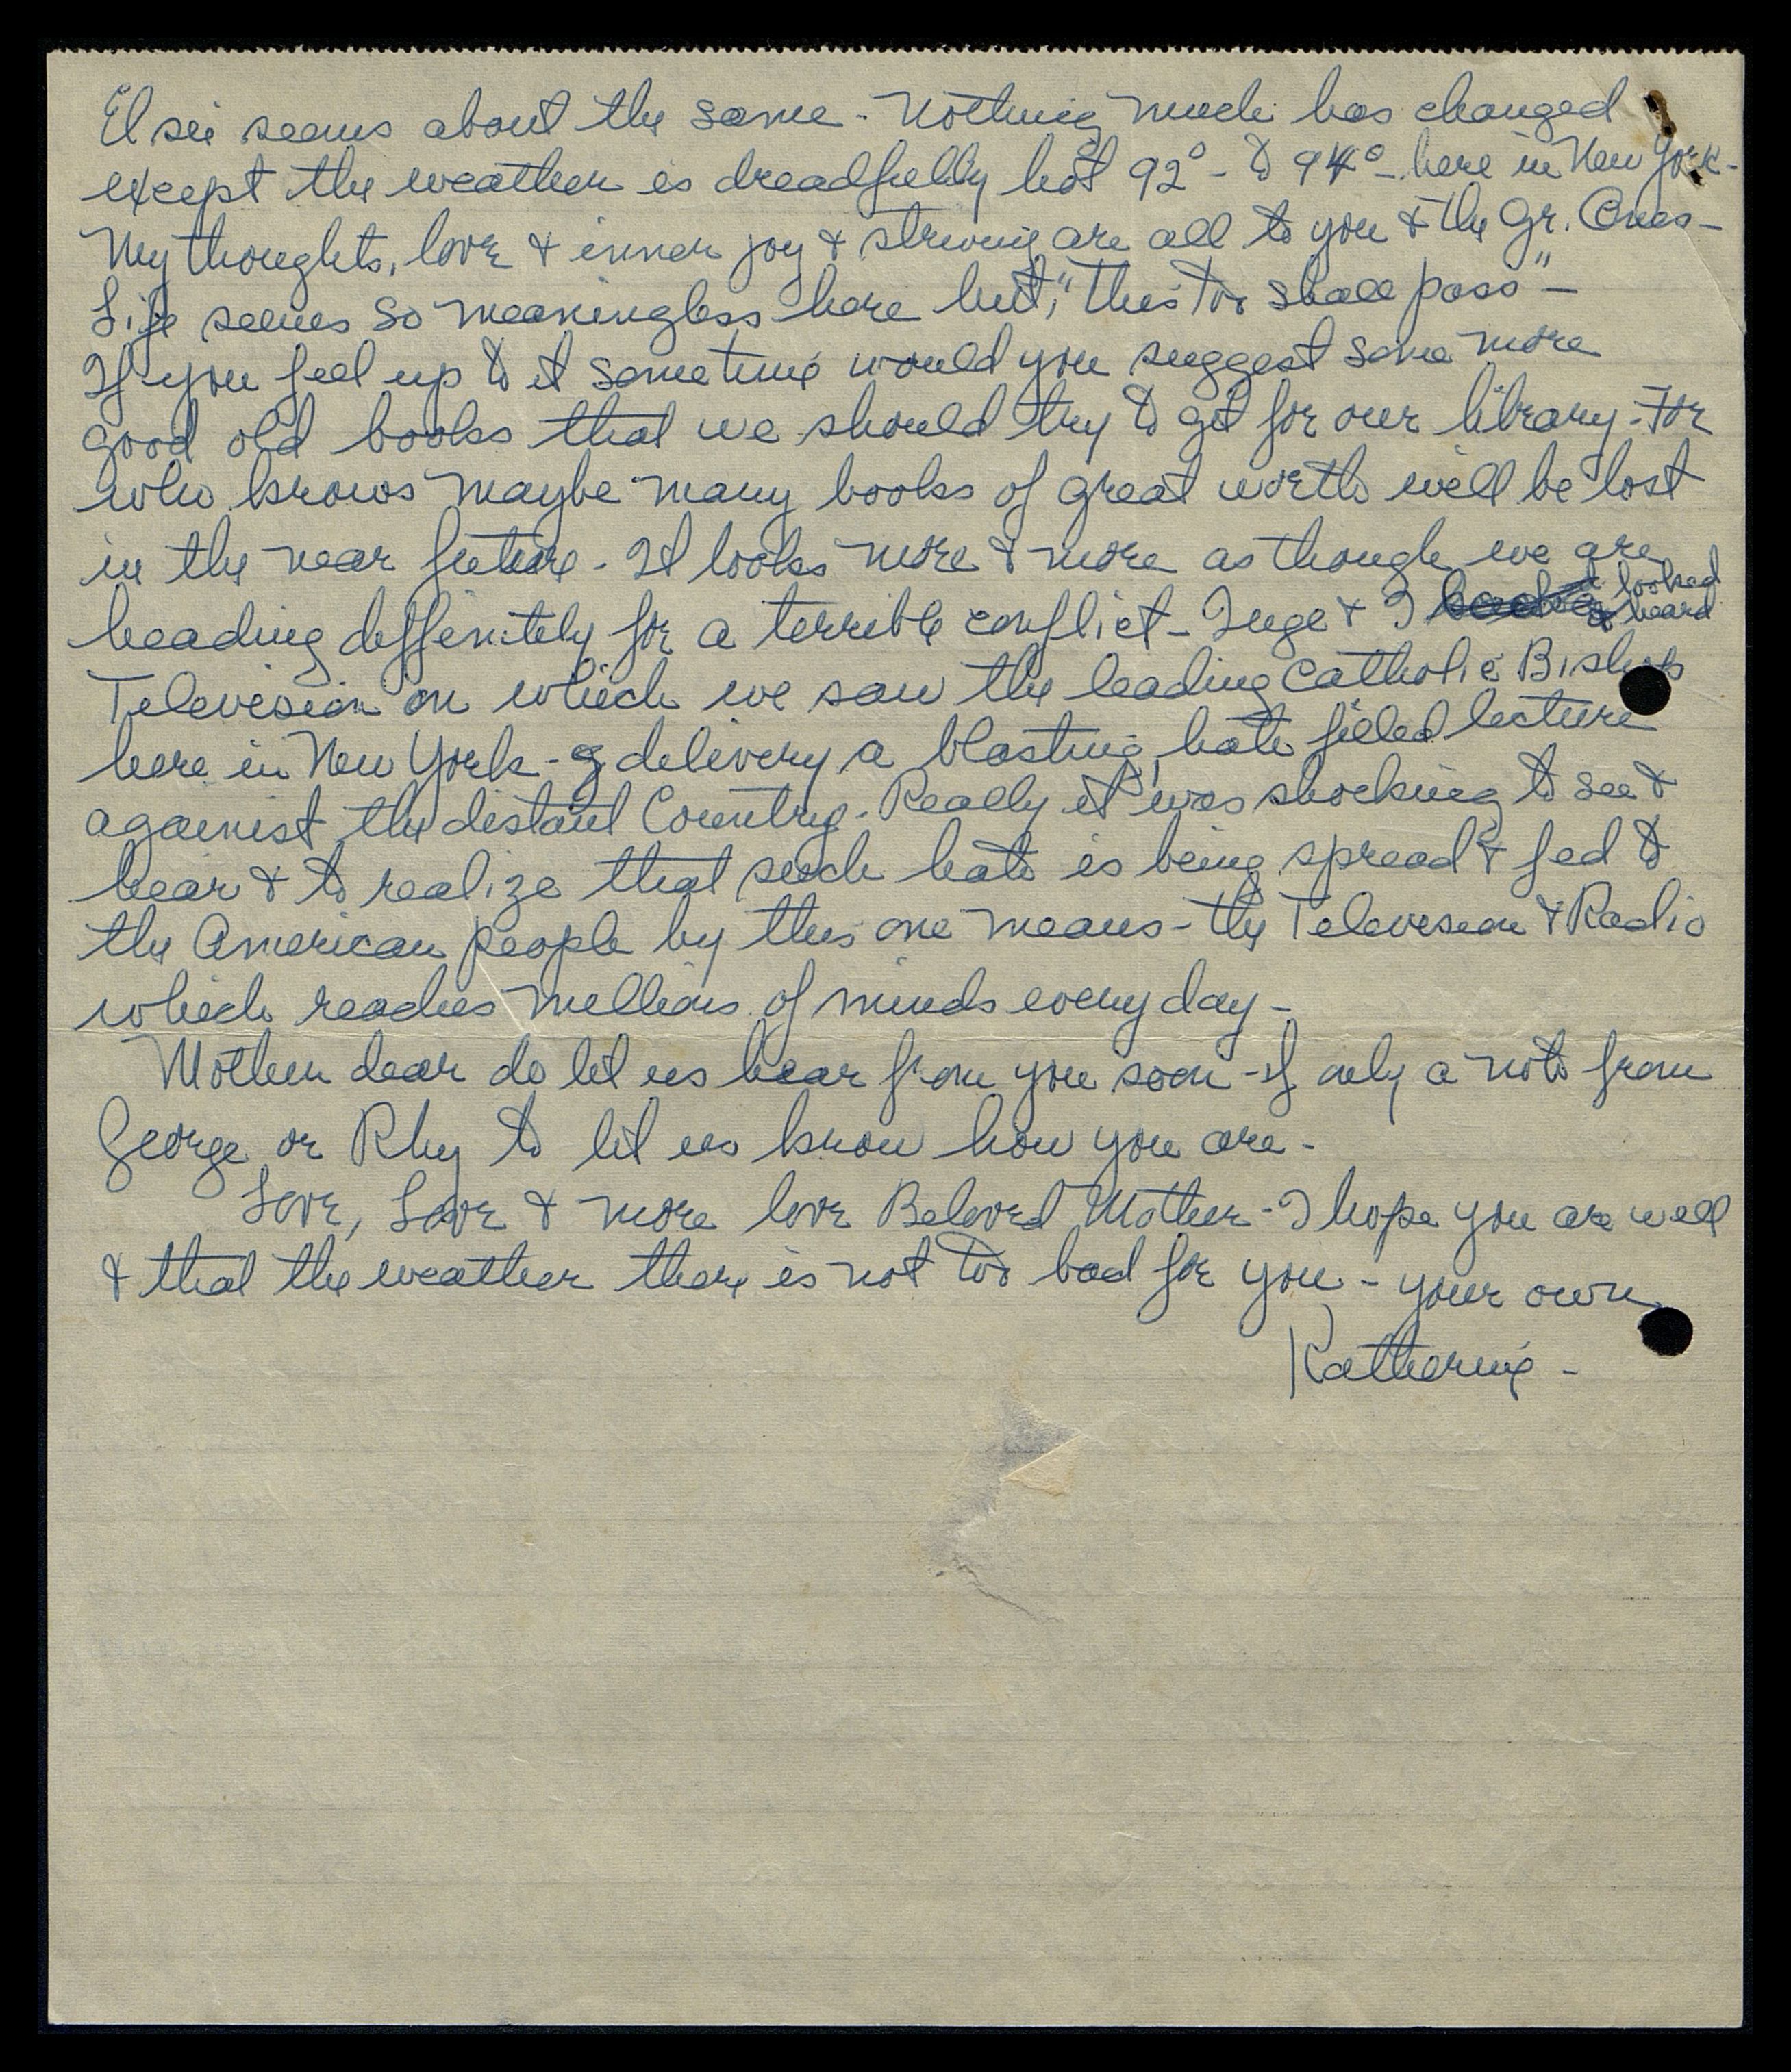 Elsie seems about the same - Nothing much has changed
except the weather is dreadfully hot 92° - to 94° - here in New York -
My thoughts, love & inner joy & striving are all to you & the Gr. Ones -
Life seems so meaningless here but, "this too shall pass" -
If you feel up to it sometime would you suggest some more
good old books that we should try to get for our library - For
who knows maybe many books of great worth will be lost
in the near future - It looks more & more as though we are
heading deffenitely for a terrible conflict - Inge & I looked
& heard
Television on which we saw the leading Catholic Bishop
here in New York - delivery a blasting, hate filled lecture
againist the distant Country. Really it was shocking to see &
hear & to realize that such hate is being spread & fed to
the American people by this one means - the Television & Radio
which reaches millions of minds every day -
Mother dear do let us hear from you soon - if only a note from
George or Rhy to let us know how you are -
Love, Love & more love Beloved Mother - I hope you are well
& that the weather there is not too bad for you - your own
Katherine -